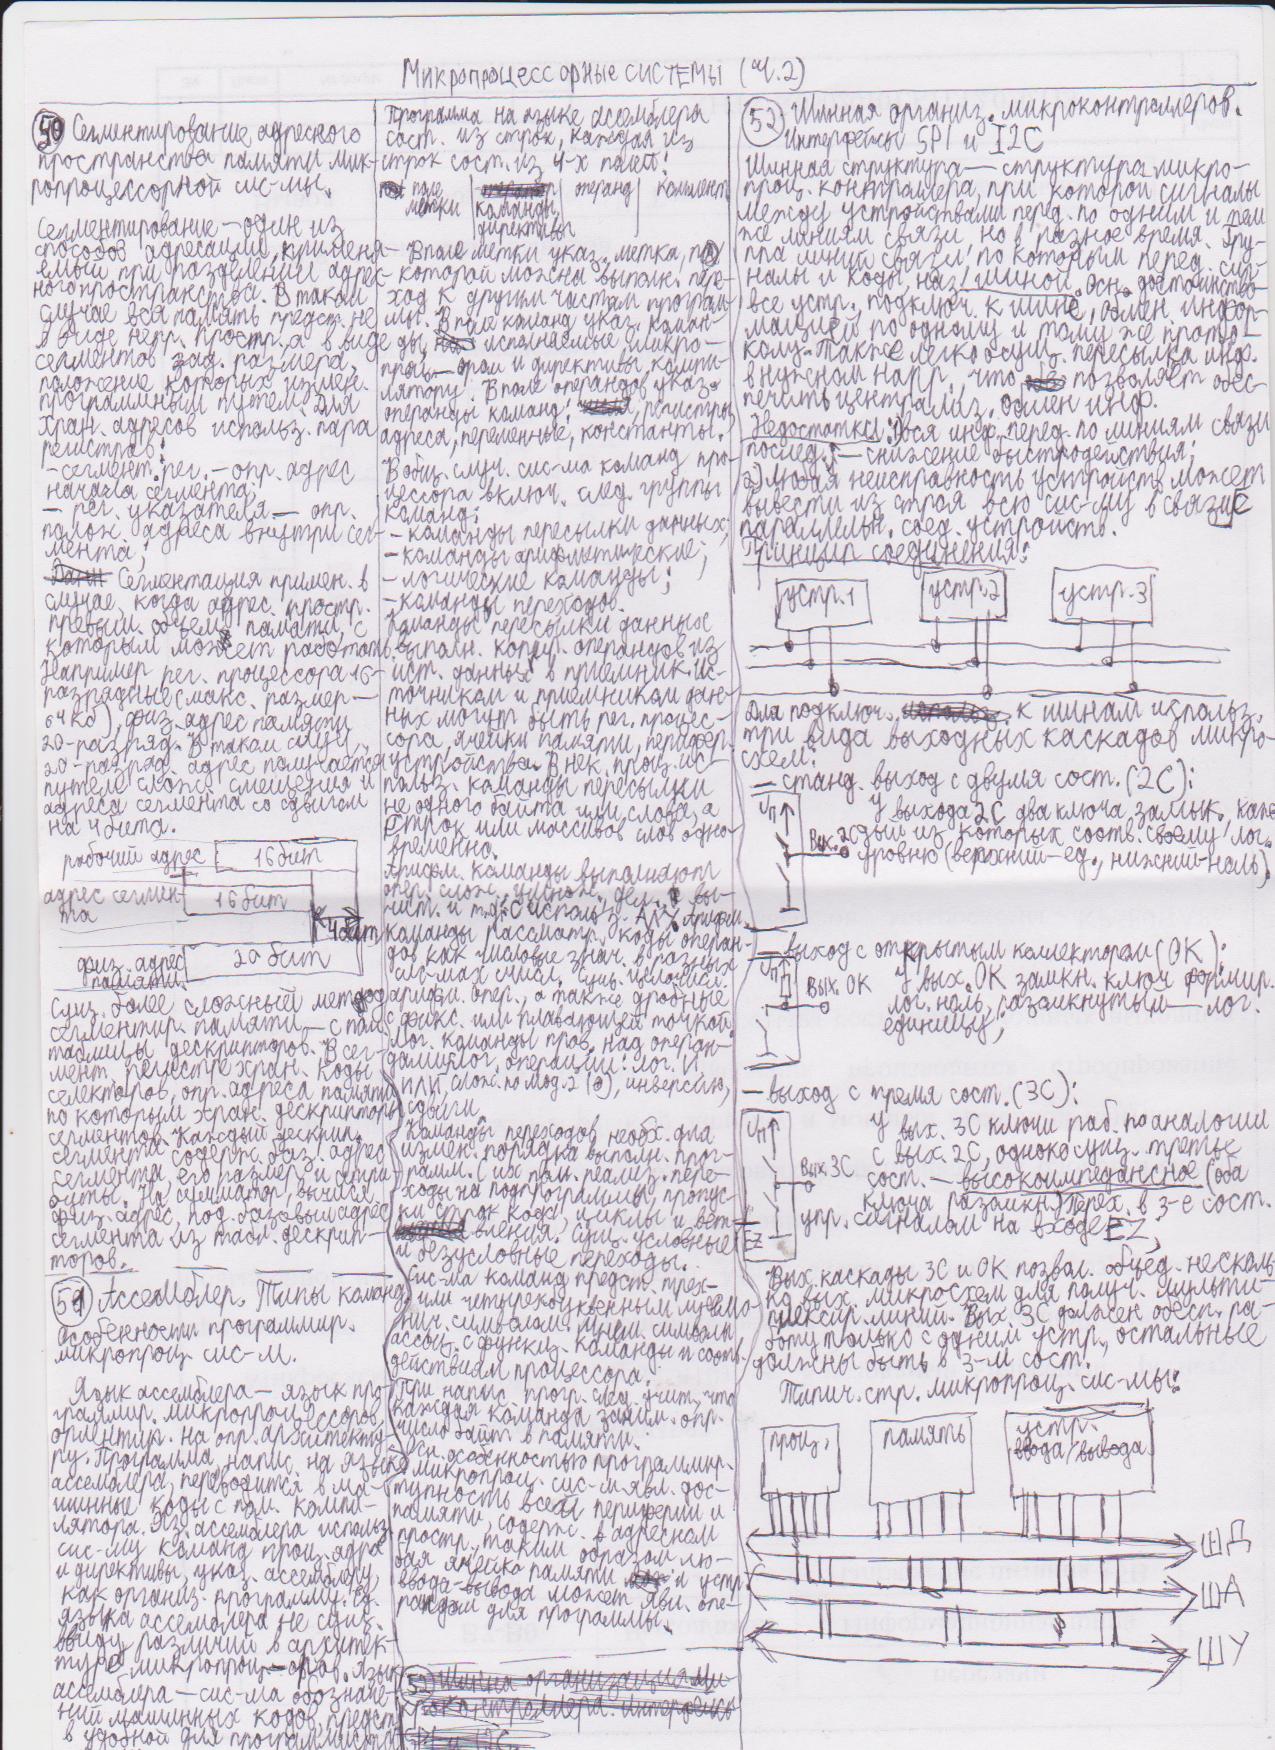 Микропроцессорные системы (ч.2)
50 Сегментирование адресного
пространства памяти мик-
ропроцессорной сис-мы.
Сегментирование – один из
способов адресации, применя-
емый при разделении адрес-
ного пространства. В таком
случае вся память предст. не
в виде непр. простр., а в виде
сегментов зад. размера,
положение которых измен.
программным путем. Для
хран. адресов использ. пара
регистров:
- сегмент. рег. – опр. адрес
начала сегмента,
– рег. указателя – опр.
полож. адреса внутри сег-
мента;
Сегментация примен. в
случае, когда адрес. простр.
превыш. объем памяти, с
которым может работать.
Например рег. процессора 16-
разрядные (макс. размер –
64 Кб), физ. адрес памяти
20-разряд. В таком случ.
20-разряд. адрес получается
путем слож. смещения и
адреса сегмента со сдвигом
на 4 бита.
рабочий адрес 16 бит
адрес сегмен-
та 16 бит
4 бит
физ. адрес
памяти 20 бит
Сущ. более сложный метод
сегментир. памяти – с пом.
таблицы дескрипторов. В сег-
мент. регистре хран. коды
селекторов, опр. адреса памяти
по которым хран. дескрипторы
сегментов. Каждый дескрип.
сегмента содерж. баз. адрес
сегмента, его размер и атри-
буты. На сумматор, вычисл.
физ. адрес, под. базовый адрес
сегмента из табл. дескрип-
торов.
51 Ассемблер. Типы команд
Особенности программир.
микропроц. сис-м.
Язык ассемблера – язык про-
граммир. микропроцессоров,
ориентир. на опр. архитекту-
ру. Программа, напис. на языке
ассемблера, переводится в ма-
шинные коды с пом. компи-
лятора. Яз. ассемблера использ.
сис-му команд проц. ядра
и директивы, указ. ассемблеру,
как организ. программу. Ед.
языка ассемблера не сущ.
ввиду различий в архитек-
туре микропроц-оров. Язык
ассемблера – сис-ма обозначе-
ний машинных кодов, предст.
в удобной для программиста
Программа на языке ассемблера
сост. из строк, каждая из
строк сост. из 4-х полей:
поле метки | команды директивы | операнд | коммент.
В поле метки указ. метка, по
которой можно выполн. пере-
ход к другим частям програм-
мы. В поле команд указ. коман-
ды, исполняемые микро-
проц-ором и директивы компи-
лятору. В поле операндов указ.
операнды команд: регистры,
адреса, переменные, константы.
В общ. случ. сис-ма команд про-
цессора включ. след. группы
команд:
- команды пересылки данных;
- команды арифметические;
- логические команды;
- команды переходов.
Команды пересылки данных
выполн. копир. операндов из
ист. данных в приемник. Ис-
точником и приемником дан-
ных могут быть рег. процес-
сора, ячейки памяти, перифер.
устройства. В нек. проц. ис-
польз. команды пересылки
не одного байта или слова, а
строк или массивов слов одно-
временно.
Арифм. команды выполняют
опер. слож., умнож., дел., вы-
чит. и т.д. с использ. АЛУ. Арифм.
команды рассматр. коды операн-
дов как числовые знач. в разных
сис-мах счисл. Сущ. целочисл.
арифм. опер., а также дробные
с фикс. или плавающей точкой.
Лог. команды пров. над операн-
дами лог. операции: лог. И,
ИЛИ, слож. по мод. 2 (⊕), инверсию,
сдвиги.
Команды переходов необх. для
измен. порядка выполн. прог-
рамм. С их пом. реализ. пере-
ходы на подпрограммы, пропус-
ки строк кода, циклы и вет-
вления. Сущ. условные
и безусловные переходы.
Сис-ма команд предст. трех-
или четырехбуквенным мнемо-
нич. символам. Мнем. символы
ассоц. с функц. команды и соотв.
действиям процессора.
При напис. прогр. след. учит., что
каждая команда заним. опр.
число байт в памяти.
Осн. особенностью программир.
микропроц. сис-м явл. дос-
тупность всей периферии и
памяти, содерж. в адресном
простр., таким образом лю-
бая ячейка памяти и устр.
ввода-вывода может явл. опе-
рандом для программы.
52 Шинная организация ми-
кроконтроллера. Интерфейсы
SPI и I2C
52 Шинная организ. микроконтроллеров.
Интерфейсы SPI и I2C
Шинная структура – структура микро-
проц. контроллера, при которой сигналы
между устройствами перед. по одним и тем
же линиям связи, но в разное время. Гру-
ппа линий связи, по которым перед. сиг-
налы и коды, наз. шиной. Осн. достоинство –
все устр., подключ. к шине, обмен. инфор-
мацией по одному и тому же прото-
колу. Также легко осущ. пересылка инф.
в нужном напр., что позволяет обес-
печить централиз. обмен инф.
Недостатки: 1) вся инф. перед. по линиям связи
послед. – снижение быстродействия;
2) любая неисправность устройств может
вывести из строя всю сис-му в связи с
параллельн. соед. устройств.
Принцип соединения:
устр. 1 устр. 2 устр. 3
Для подключ. к шинам использ.
три вида выходных каскадов микро-
схем:
– станд. выход с двумя сост. (2С):
Uп
Вых. 2С
У выхода 2С два ключа замык., каж-
дый из которых соотв. своему лог.
уровню (верхний – ед., нижний – ноль).
– выход с открытым коллектором (ОК):
Uп
Вых. ОК
У вых. ОК замкн. ключ формир.
лог. ноль, разомкнутый – лог.
единицу;
– выход с тремя сост. (3С):
Uп
Вых. 3С
EZ
У вых. 3С ключи раб. по аналогии
с вых. 2С, однако сущ. третье
сост. – высокоимпедансное (оба
ключа разомкн.) Перех. в 3-е сост.
упр. сигналом на входе EZ,
Вых. каскады 3С и ОК позвол. объед. несколь-
ко вых. микросхем для получ. мульти-
плексир. линий. Вых. 3С должен обесп. ра-
боту только с одним устр., остальные
должны быть в 3-м сост.
Типич. стр. микропроц. сис-мы:
проц. память устр. ввода/вывода
ШД
ША
ШУ